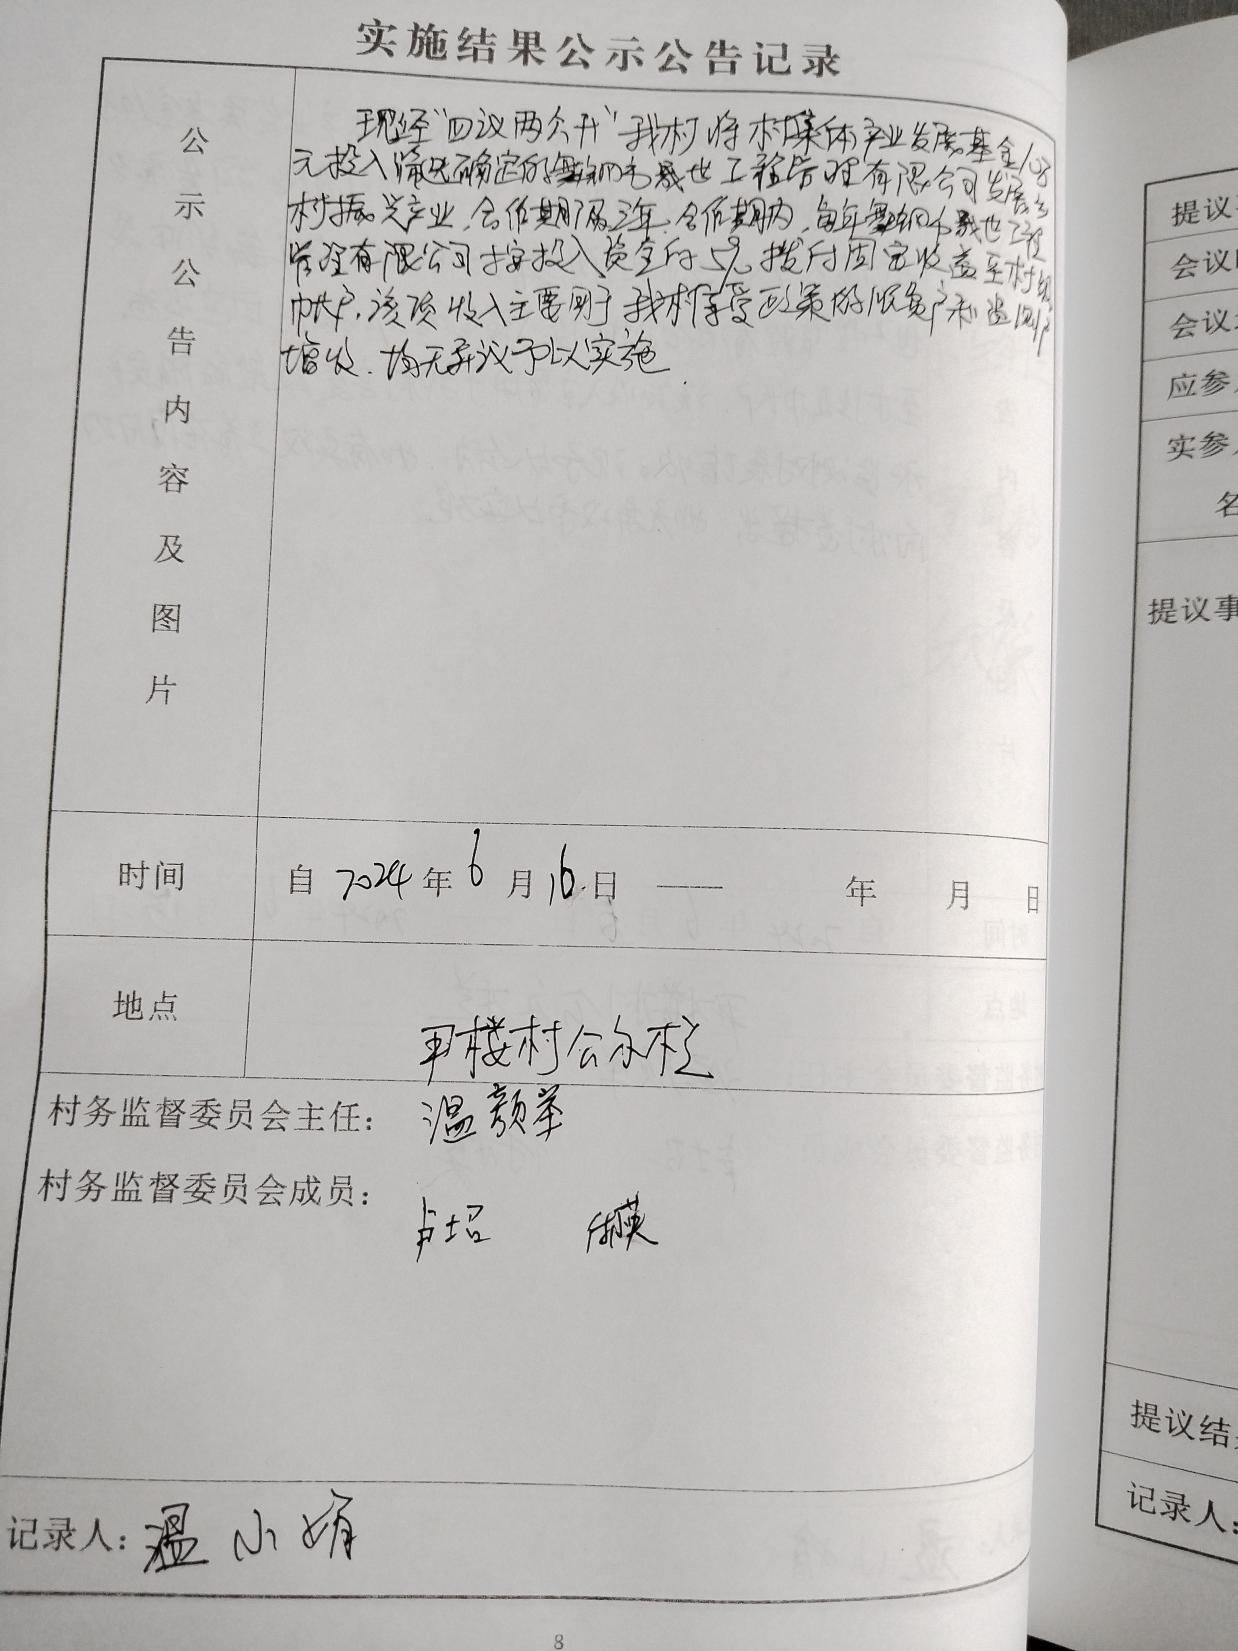 实施结果公示公告记录
公示公告内容及图片
现经“四议两公开”我村将村集体产业发展基金10万
元投入筛选确定的舞钢市晟世工程管理有限公司发展乡
村振兴产业,合作期限三年,合作期内,每年舞钢市晟世工程
管理有限公司按投入资金的5%拨付固定收益至村级
帐户,该项收入主要用于我村享受政策的脱贫户和监测户
增收,均无异议予以实施.
时间
自2024年6月16日 —— 年 月 日
地点
冉楼村公示栏
村务监督委员会主任: 温颜举
村务监督委员会成员:
卢士召
记录人: 温小娟
8
提议
会议
会议
应参
实参
名
提议事
提议结
记录人: